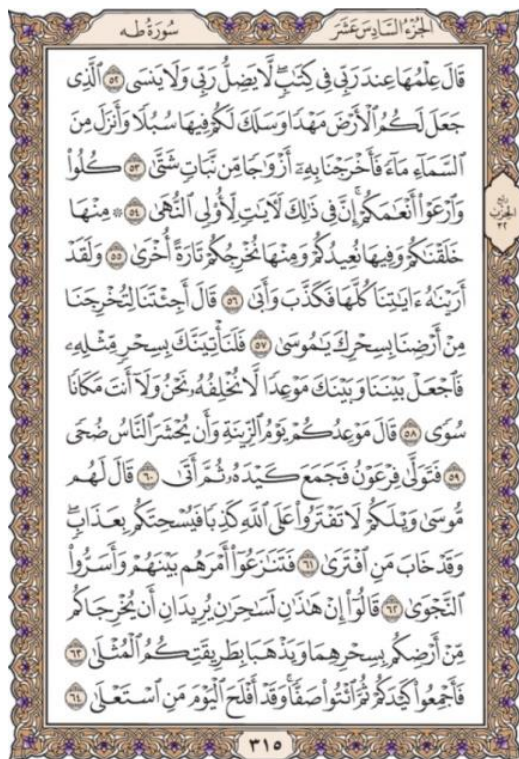 الجُزْءُ السَّادِسَ عَشَرَ
سُورَةُ طه
قَالَ عِلْمُهَا عِندَ رَبِّى فِى كِتَٰبٍۖ لَّا يَضِلُّ رَبِّى وَلَا يَنسَى ۝٥٢ ٱلَّذِى
جَعَلَ لَكُمُ ٱلْأَرْضَ مَهْدًا وَسَلَكَ لَكُمْ فِيهَا سُبُلًا وَأَنزَلَ مِنَ
ٱلسَّمَآءِ مَآءً فَأَخْرَجْنَا بِهِۦٓ أَزْوَٰجًا مِّن نَّبَاتٍ شَتَّىٰ ۝٥٣ كُلُوا۟
وَٱرْعَوْا۟ أَنْعَٰمَكُمْۗ إِنَّ فِى ذَٰلِكَ لَءَايَٰتٍ لِّأُو۟لِى ٱلنُّهَىٰ ۝٥٤ ۞ مِنْهَا
خَلَقْنَٰكُمْ وَفِيهَا نُعِيدُكُمْ وَمِنْهَا نُخْرِجُكُمْ تَارَةً أُخْرَىٰ ۝٥٥ وَلَقَدْ
أَرَيْنَٰهُ ءَايَٰتِنَا كُلَّهَا فَكَذَّبَ وَأَبَىٰ ۝٥٦ قَالَ أَجِئْتَنَا لِتُخْرِجَنَا
مِنْ أَرْضِنَا بِسِحْرِكَ يَٰمُوسَىٰ ۝٥٧ فَلَنَأْتِيَنَّكَ بِسِحْرٍ مِّثْلِهِۦ
فَٱجْعَلْ بَيْنَنَا وَبَيْنَكَ مَوْعِدًا لَّا نُخْلِفُهُۥ نَحْنُ وَلَآ أَنتَ مَكَانًا
سُوًى ۝٥٨ قَالَ مَوْعِدُكُمْ يَوْمُ ٱلزِّينَةِ وَأَن يُحْشَرَ ٱلنَّاسُ ضُحًى
۝٥٩ فَتَوَلَّىٰ فِرْعَوْنُ فَجَمَعَ كَيْدَهُۥ ثُمَّ أَتَىٰ ۝٦٠ قَالَ لَهُم
مُّوسَىٰ وَيْلَكُمْ لَا تَفْتَرُوا۟ عَلَى ٱللَّهِ كَذِبًا فَيُسْحِتَكُم بِعَذَابٍۖ
وَقَدْ خَابَ مَنِ ٱفْتَرَىٰ ۝٦١ فَتَنَٰزَعُوٓا۟ أَمْرَهُم بَيْنَهُمْ وَأَسَرُّوا۟
ٱلنَّجْوَىٰ ۝٦٢ قَالُوٓا۟ إِنْ هَٰذَٰنِ لَسَٰحِرَٰنِ يُرِيدَانِ أَن يُخْرِجَاكُم
مِّنْ أَرْضِكُم بِسِحْرِهِمَا وَيَذْهَبَا بِطَرِيقَتِكُمُ ٱلْمُثْلَىٰ ۝٦٣
فَأَجْمِعُوا۟ كَيْدَكُمْ ثُمَّ ٱئْتُوا۟ صَفًّاۚ وَقَدْ أَفْلَحَ ٱلْيَوْمَ مَنِ ٱسْتَعْلَىٰ ۝٦٤
الحِزْب
٣٢
٣١٥